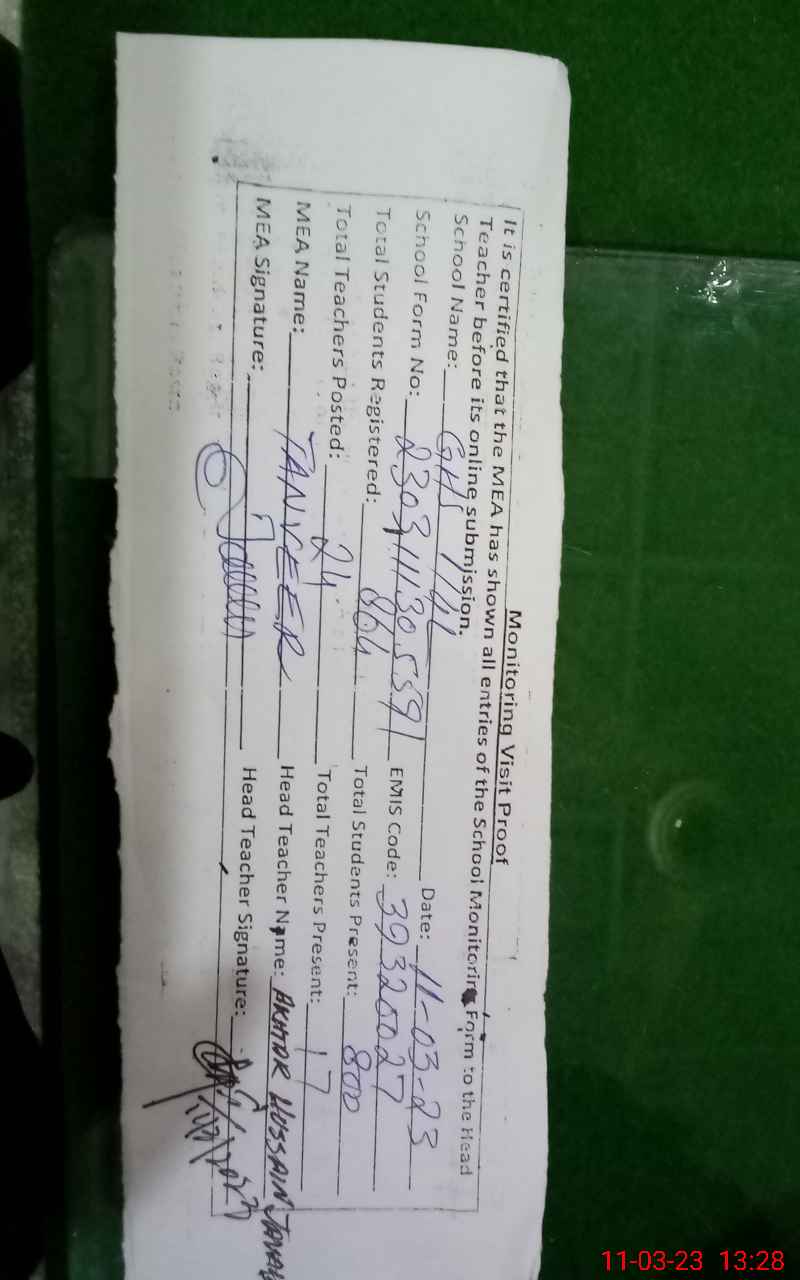 Monitoring Visit Proof
It is certified that the MEA has shown all entries of the School Monitoring Form to the Head
Teacher before its online submission.
School Name: GHS Date: 11-03-23
School Form No: 230311305591 EMIS Code: 39320027
Total Students Registered: 864 Total Students Present: 800
Total Teachers Posted: 24 Total Teachers Present: 17
MEA Name: TANVEER Head Teacher Name: AKHTAR HUSSAIN
MEA Signature: Head Teacher Signature:
11-03-23 13:28